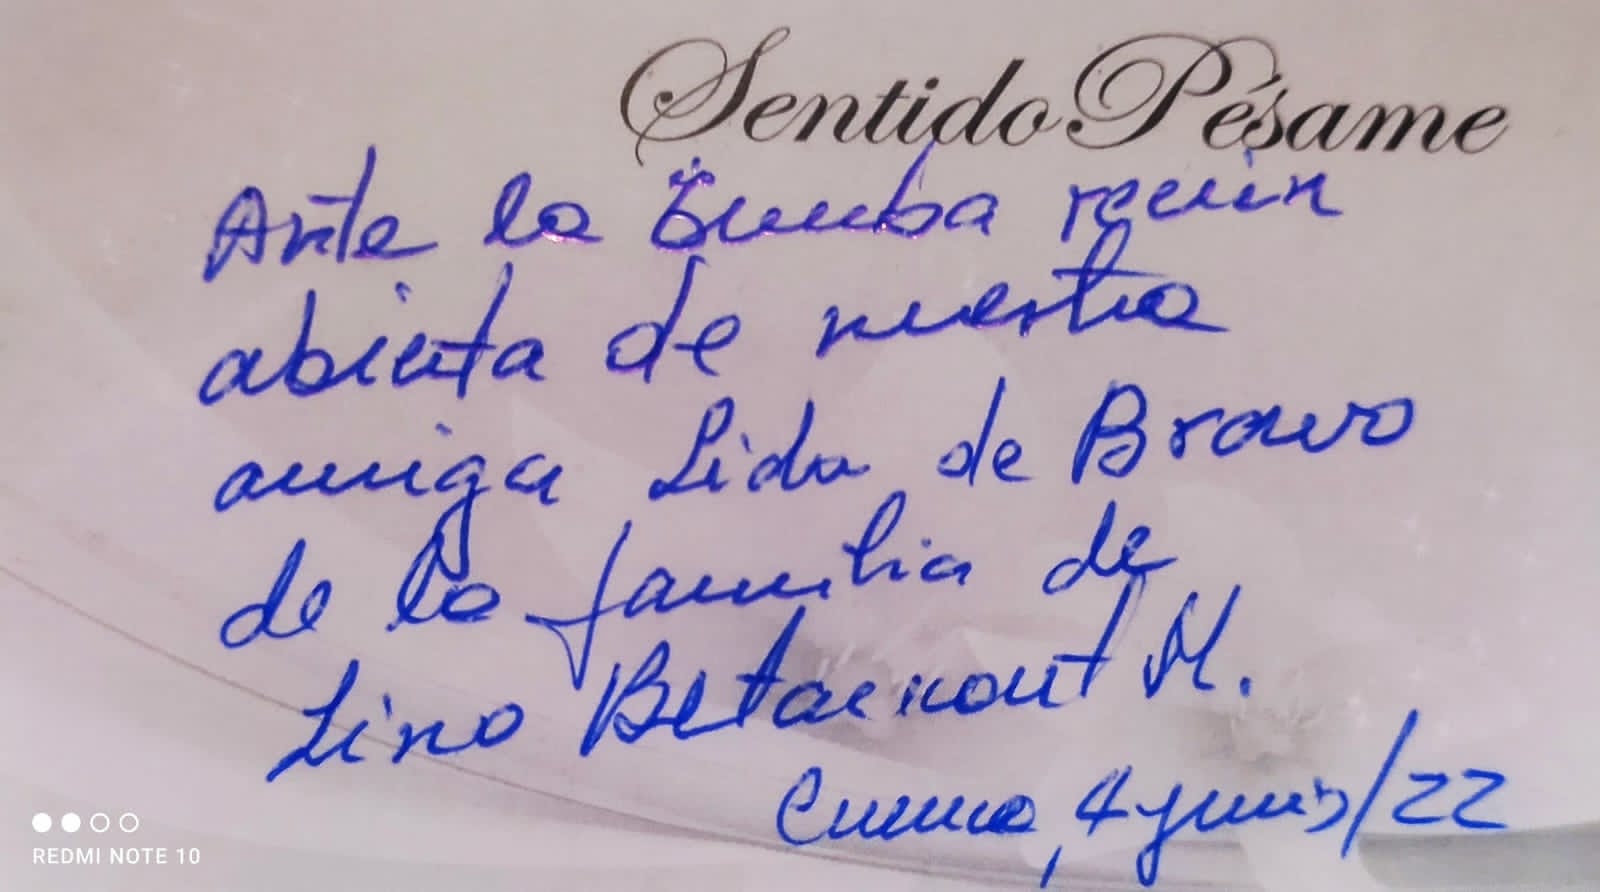 Sentido Pésame
Ante la tumba recien
abierta de nuestra
amiga Lida de Bravo
de la familia de
Lino Betancourt M.
Cuenca, 4 junio/22
REDMI NOTE 10